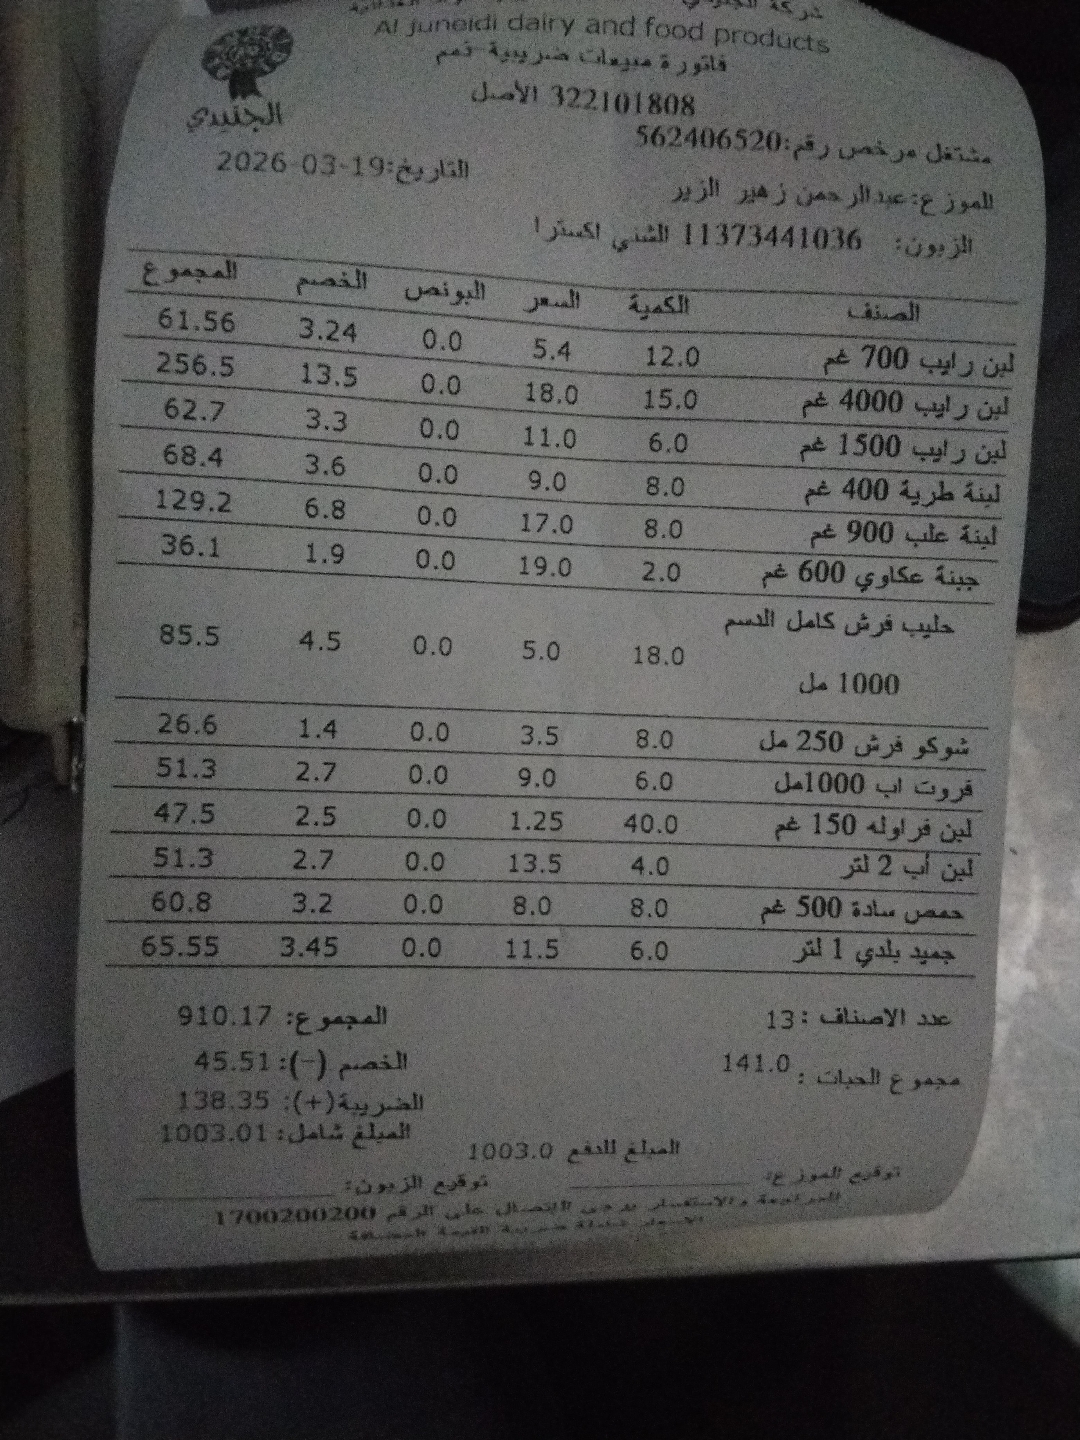 شركة الجنيدي
Al juneidi dairy and food products
فاتورة مبيعات ضريبية ذمم
الجنيدي
322101808 الأصل
مشتغل مرخص رقم:562406520
التاريخ:2026-03-19
الموزع:عبدالرحمن زهير الزير
الزبون: 11373441036 الشني اكسترا
الصنف الكمية السعر البونص الخصم المجموع
لبن رايب 700 غم 12.0 5.4 0.0 3.24 61.56
لبن رايب 4000 غم 15.0 18.0 0.0 13.5 256.5
لبن رايب 1500 غم 6.0 11.0 0.0 3.3 62.7
لبنة طرية 400 غم 8.0 9.0 0.0 3.6 68.4
لبنة علب 900 غم 8.0 17.0 0.0 6.8 129.2
جبنة عكاوي 600 غم 2.0 19.0 0.0 1.9 36.1
حليب فرش كامل الدسم
1000 مل 18.0 5.0 0.0 4.5 85.5
شوكو فرش 250 مل 8.0 3.5 0.0 1.4 26.6
فروت اب 1000مل 6.0 9.0 0.0 2.7 51.3
لبن فراوله 150 غم 40.0 1.25 0.0 2.5 47.5
لبن أب 2 لتر 4.0 13.5 0.0 2.7 51.3
حمص سادة 500 غم 8.0 8.0 0.0 3.2 60.8
جميد بلدي 1 لتر 6.0 11.5 0.0 3.45 65.55
عدد الاصناف : 13
المجموع: 910.17
مجموع الحبات : 141.0
الخصم (-): 45.51
الضريبة(+): 138.35
المبلغ شامل: 1003.01
المبلغ للدفع 1003.0
توقيع الموزع:
توقيع الزبون:
للمراجعة والاستفسار يرجى الإتصال على الرقم 1700200200
الاسعار شاملة ضريبة القيمة المضافة